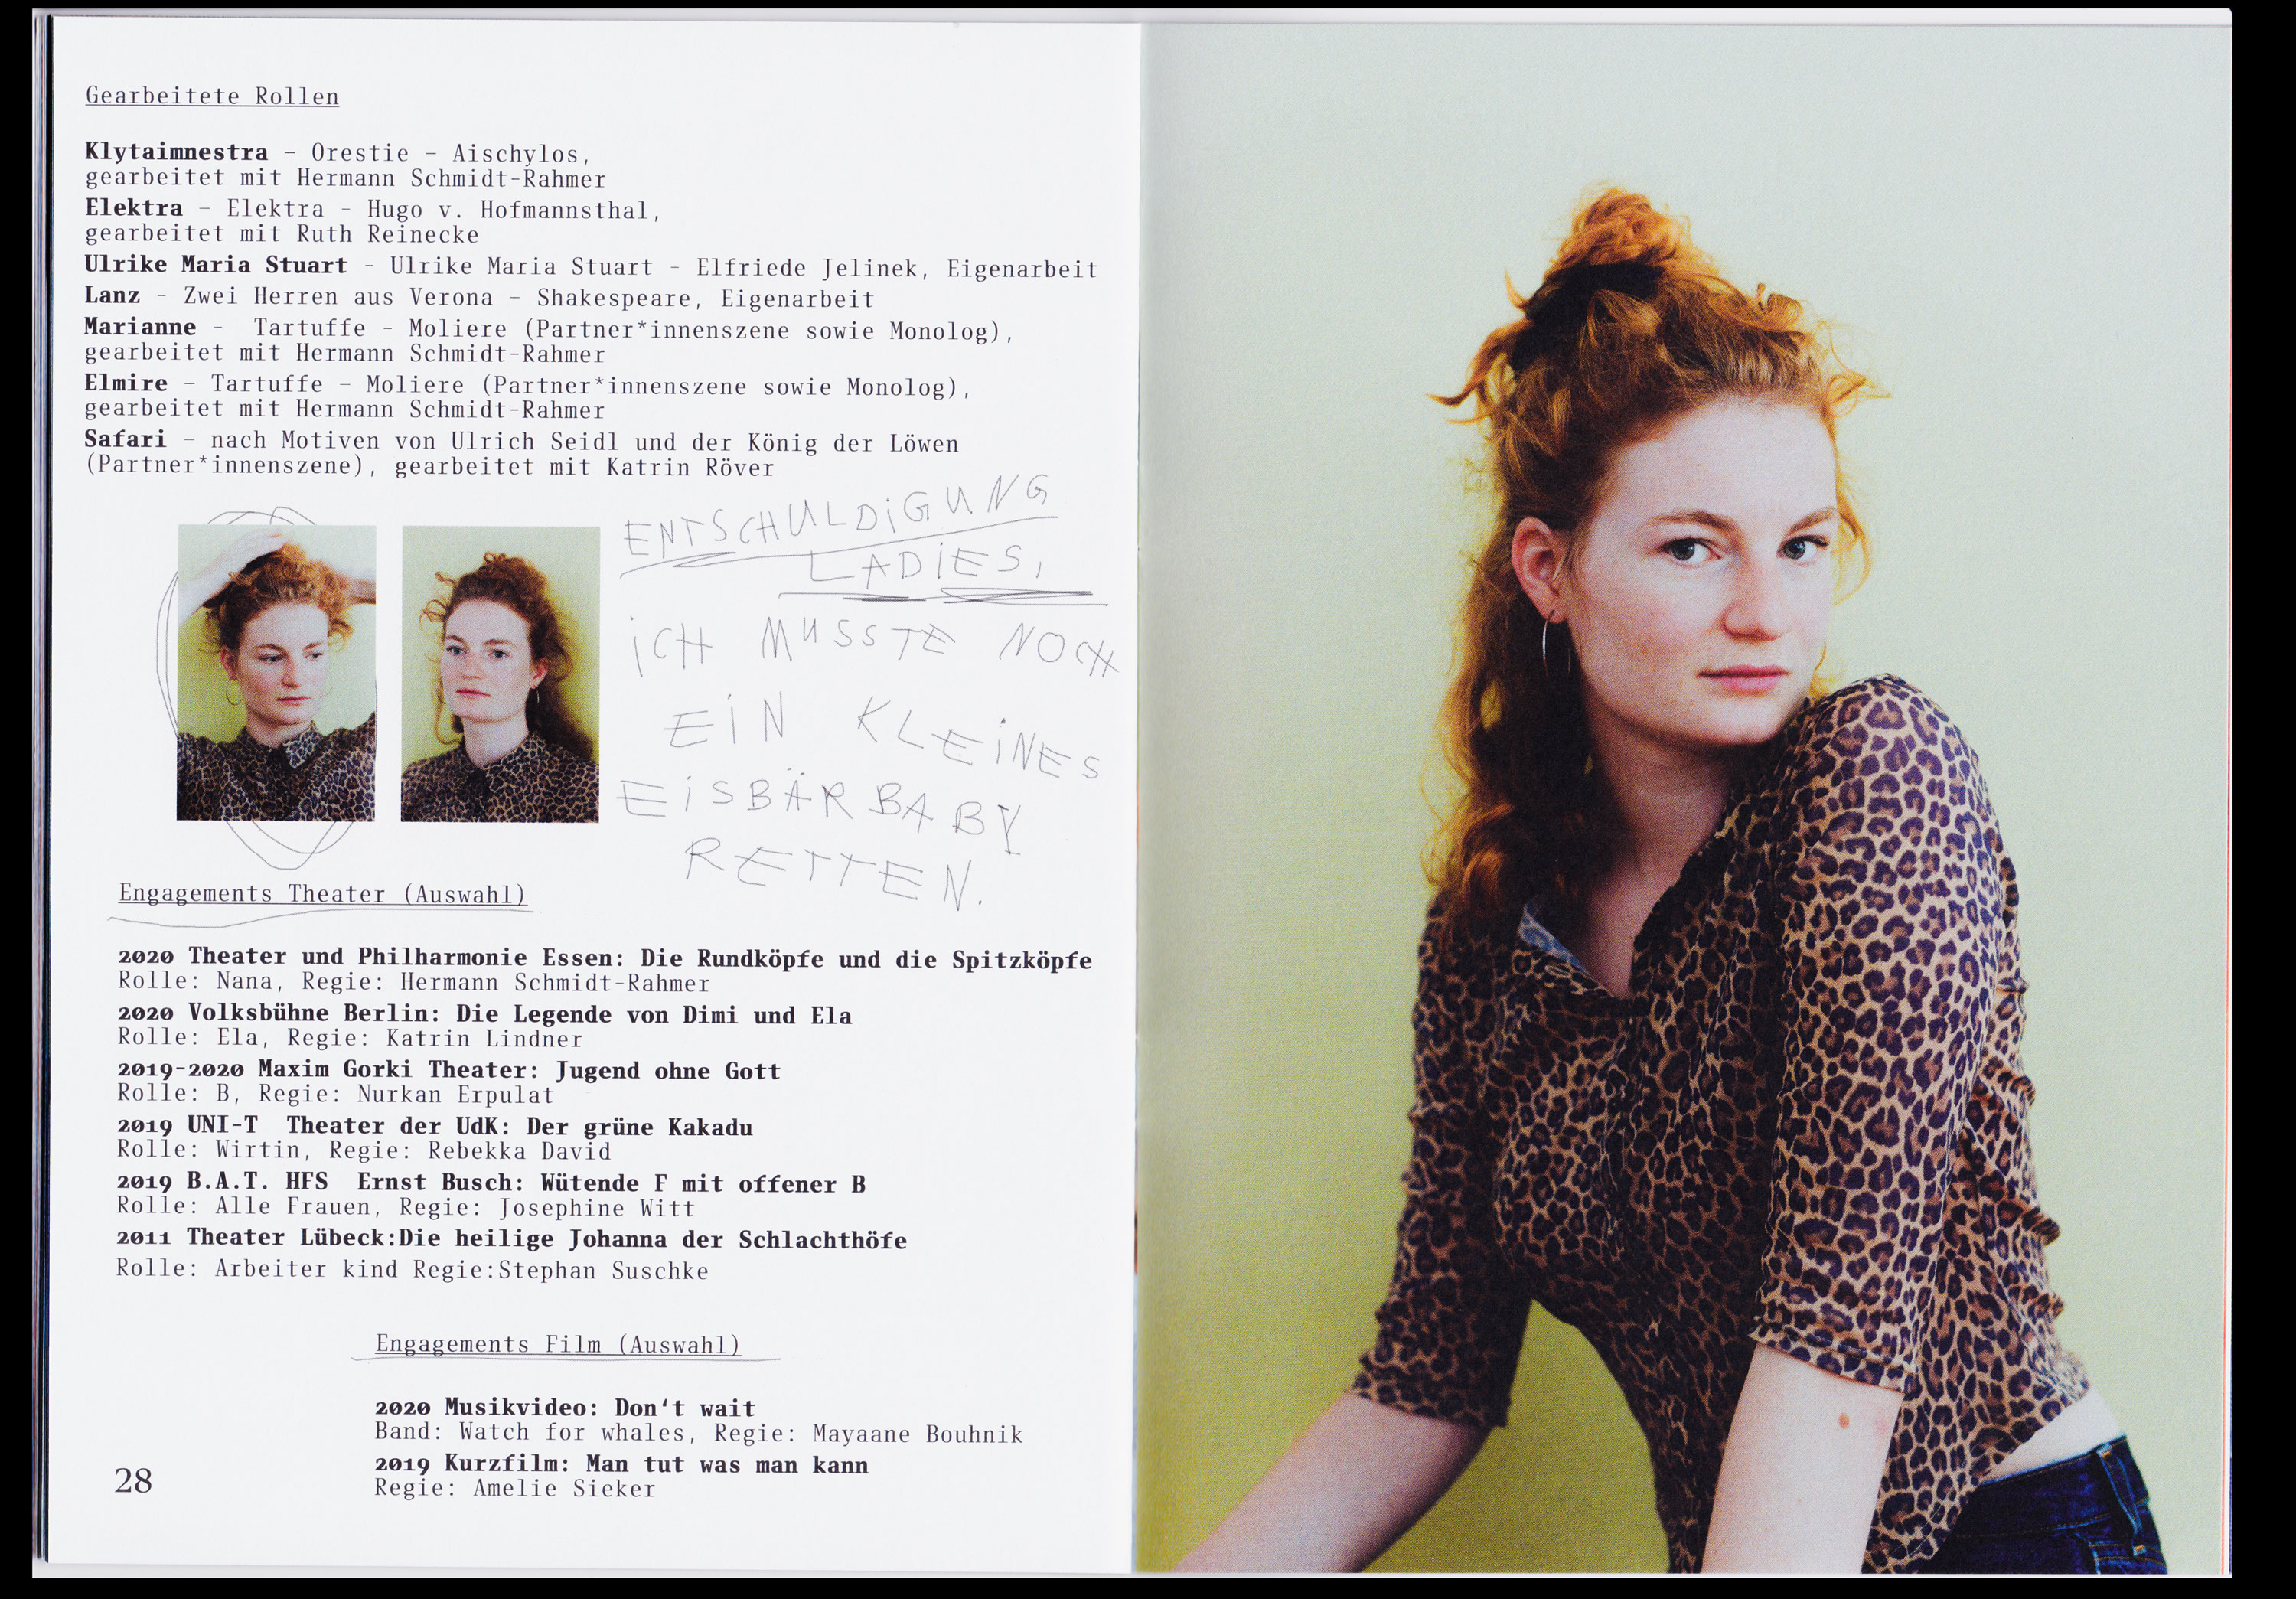 Gearbeitete Rollen
Klytaimnestra – Orestie – Aischylos,
gearbeitet mit Hermann Schmidt-Rahmer
Elektra – Elektra – Hugo v. Hofmannsthal,
gearbeitet mit Ruth Reinecke
Ulrike Maria Stuart – Ulrike Maria Stuart – Elfriede Jelinek, Eigenarbeit
Lanz – Zwei Herren aus Verona – Shakespeare, Eigenarbeit
Marianne – Tartuffe – Moliere (Partner*innenszene sowie Monolog),
gearbeitet mit Hermann Schmidt-Rahmer
Elmire – Tartuffe – Moliere (Partner*innenszene sowie Monolog),
gearbeitet mit Hermann Schmidt-Rahmer
Safari – nach Motiven von Ulrich Seidl und der König der Löwen
(Partner*innenszene), gearbeitet mit Katrin Röver
ENTSCHULDiGUNG
LADiES,
iCH MUSSTE NOCH
EiN KLEiNES
EiSBÄRBABY
RETTEN.
Engagements Theater (Auswahl)
2020 Theater und Philharmonie Essen: Die Rundköpfe und die Spitzköpfe
Rolle: Nana, Regie: Hermann Schmidt-Rahmer
2020 Volksbühne Berlin: Die Legende von Dimi und Ela
Rolle: Ela, Regie: Katrin Lindner
2019-2020 Maxim Gorki Theater: Jugend ohne Gott
Rolle: B, Regie: Nurkan Erpulat
2019 UNI-T Theater der UdK: Der grüne Kakadu
Rolle: Wirtin, Regie: Rebekka David
2019 B.A.T. HFS Ernst Busch: Wütende F mit offener B
Rolle: Alle Frauen, Regie: Josephine Witt
2011 Theater Lübeck:Die heilige Johanna der Schlachthöfe
Rolle: Arbeiter kind Regie:Stephan Suschke
Engagements Film (Auswahl)
2020 Musikvideo: Don‘t wait
Band: Watch for whales, Regie: Mayaane Bouhnik
2019 Kurzfilm: Man tut was man kann
Regie: Amelie Sieker
28